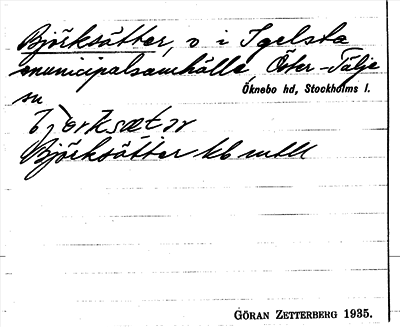 Björksätter, o i Igelsta
municipalsamhälle, Öster-Tälje
sn
Öknebo hd, Stockholms l.
Björksätter kb mtll
GÖRAN ZETTERBERG 1935.